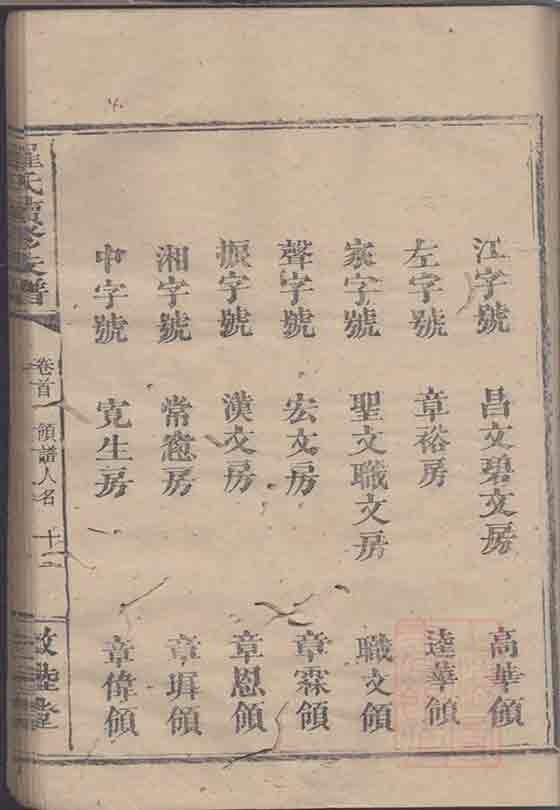 江字號 昌文碧文房 高華領
左字號 章裕房 逵華領
家字號 聖文職文房 職文領
聲字號 宏文房 章霖領
振字號 漢文房 章恩領
湘字號 常憲房 章領
中字號 寬生房 章偉領
羅氏續修支譜 卷首 領譜人名 十二 敦睦堂